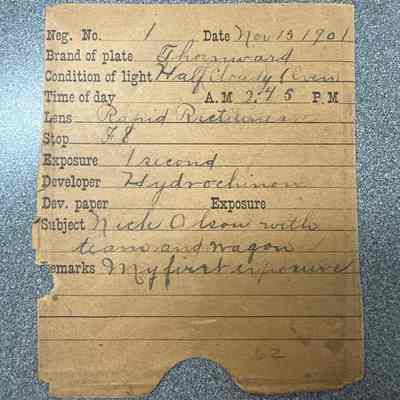 Neg. No. 1 Date Nov 15 1901
Brand of plate Thornward
Condition of light Half Cloudy (Even
Time of day A.M 2.45 P.M
Lens Rapid Rectilinear
Stop F8
Exposure 1 second
Developer Hydrochinon
Dev. paper Exposure
Subject Nick Olson with
team and wagon
Remarks My first exposure
62